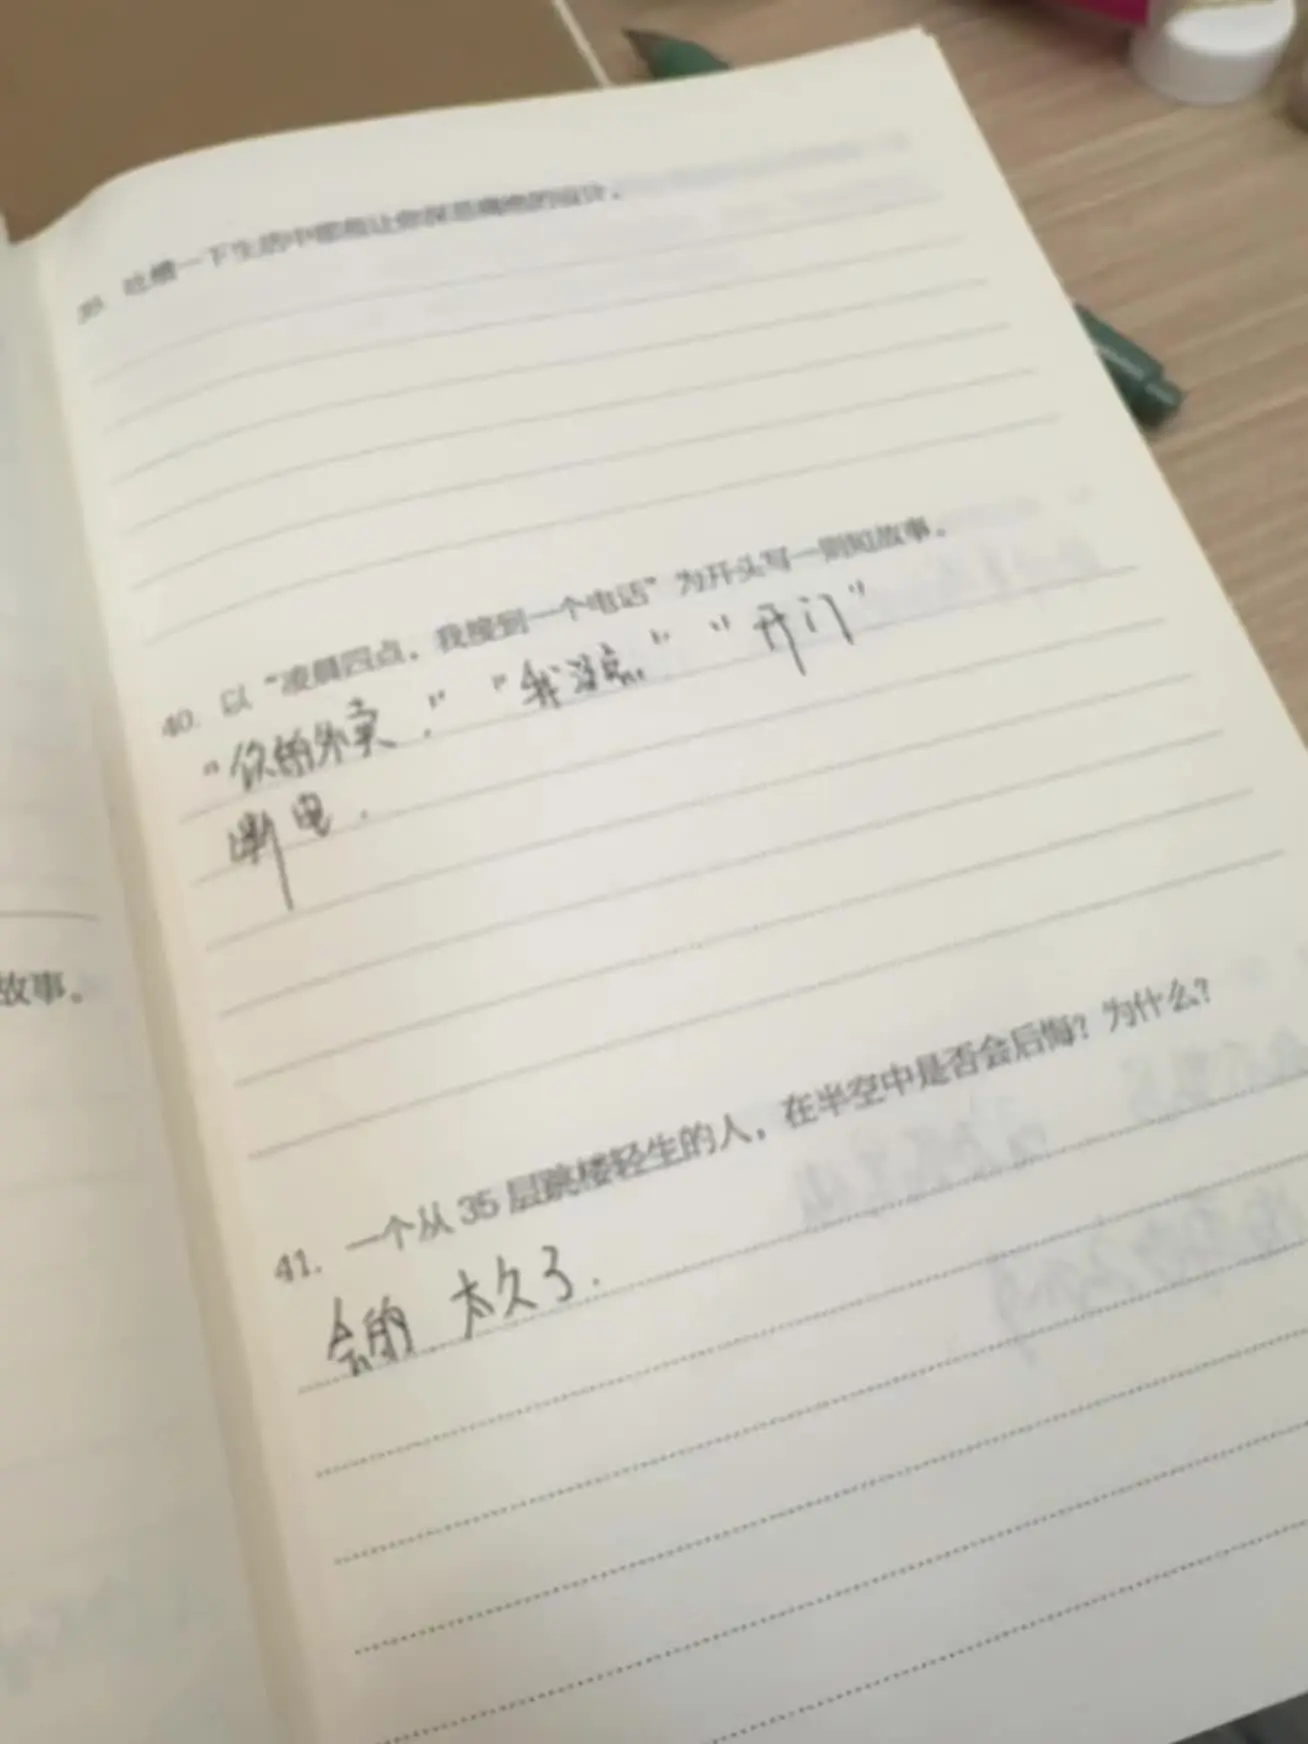 39. 吐槽一下生活中那些让你深恶痛绝的设计。
40. 以“凌晨四点，我接到一个电话”为开头写一则短故事。
“你的外卖.” “我没点.” “开门”
断电.
故事。
41. 一个从 35 层跳楼轻生的人，在半空中是否会后悔？为什么？
会的 太久了.